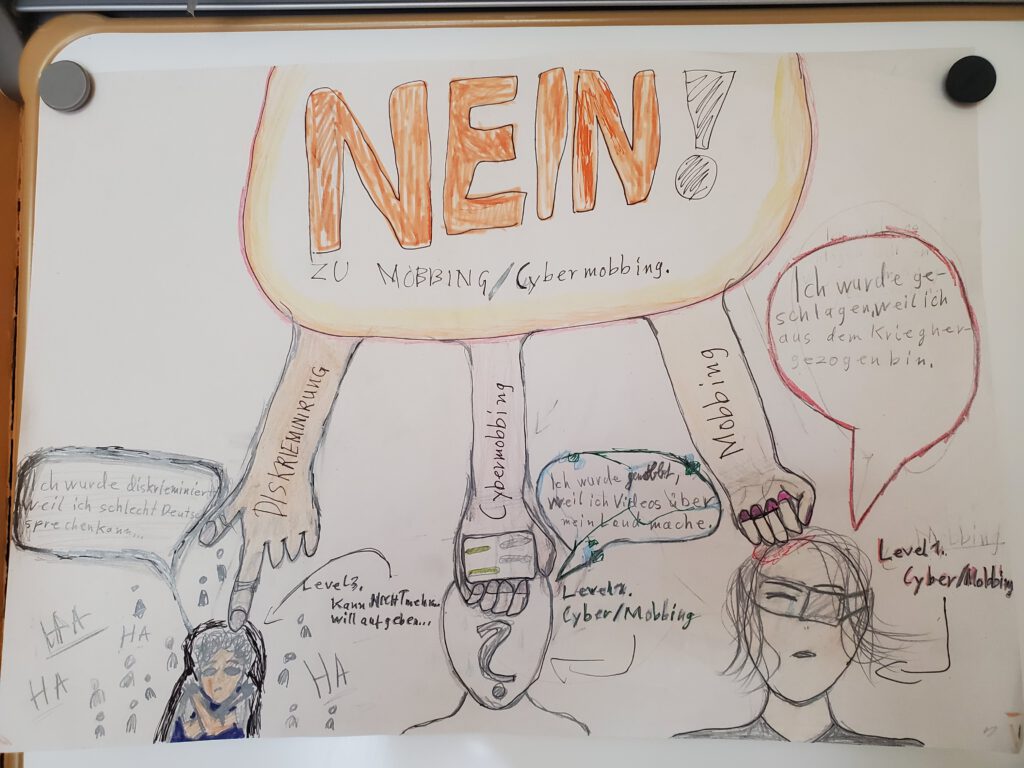 NEIN!
ZU MOBBING/Cybermobbing.
DISKRIEMINIRUNG
Cybermobbing
Mobbing
Ich wurde ge-
schlagen, weil ich
aus dem Krieg her-
gezogen bin.
Ich wurde diskrieminiert
weil ich schlecht Deutsch
sprechen kann...
Ich wurde gemobbt,
weil ich Videos über
mein Land mache.
Level 3.
Kann NICHT mehr
will aufgeben...
Cyber/Mobbing
Cyber/Mobbing
HA
HA
HA
HA
?